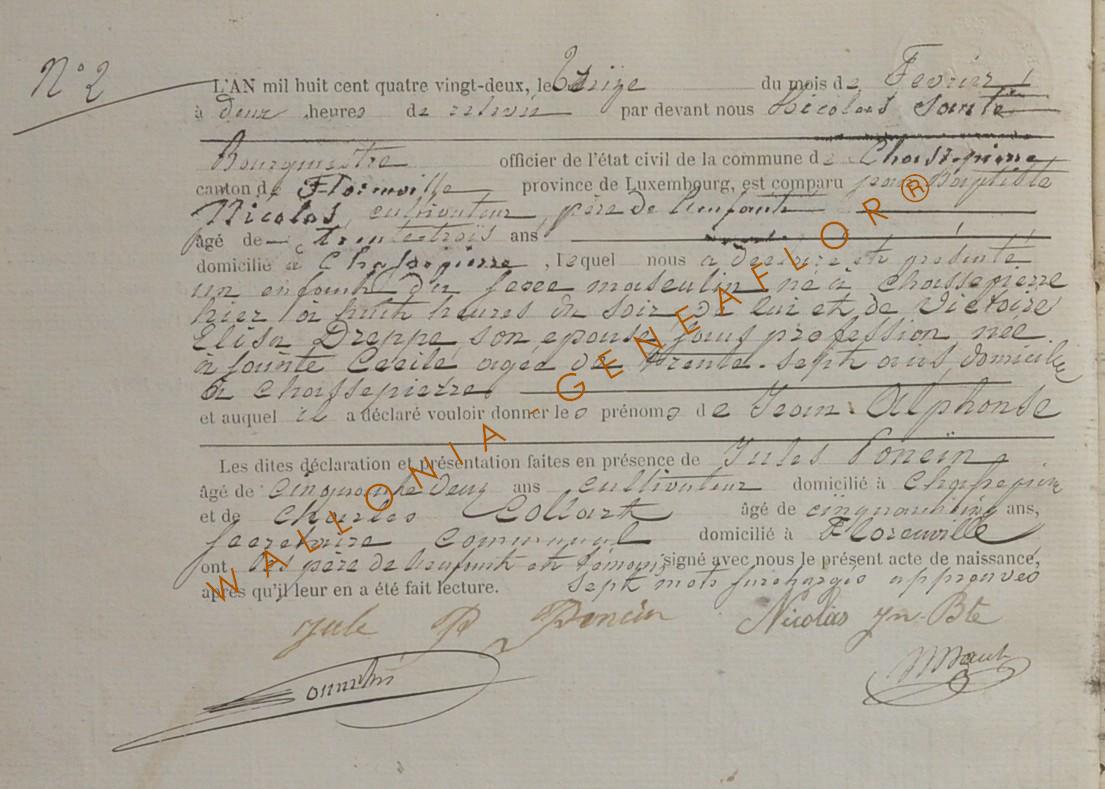 N° 2
L'AN mil huit cent quatre vingt-deux, le treize du mois de Fevrier
à deux heures de relevée par devant nous Nicolas
Bourgmestre officier de l'état civil de la commune de Chassepierre
canton de Florenville province de Luxembourg, est comparu jean Baptiste
Nicolas, cultivateur, père de l'enfant
âgé de trente trois ans
domicilié à Chassepierre, lequel nous a déclaré et présenté
un enfant du sexe masculin né à chassepierre
hier à huit heures du soir de lui et de Victoire
Elisa Dreppe son epouse sans profession née
à sainte Cecile agée de trente-sept ans, domiciliée
à Chassepierre
et auquel il a déclaré vouloir donner les prénoms de Jean. Alphonse
Les dites déclaration et présentation faites en présence de Jules Poncin,
âgé de cinquante deux ans cultivateur domicilié à Chassepierre
et de Charles Collart âgé de ans,
secretaire Communal domicilié à Florenville
ont les père de l'enfant et témoins signé avec nous le présent acte de naissance,
après qu'il leur en a été fait lecture. Sept mots surchargés approuvés
jule P Poncin Nicolas Jn-Bte
WALLONIA-GENEAFLOR®